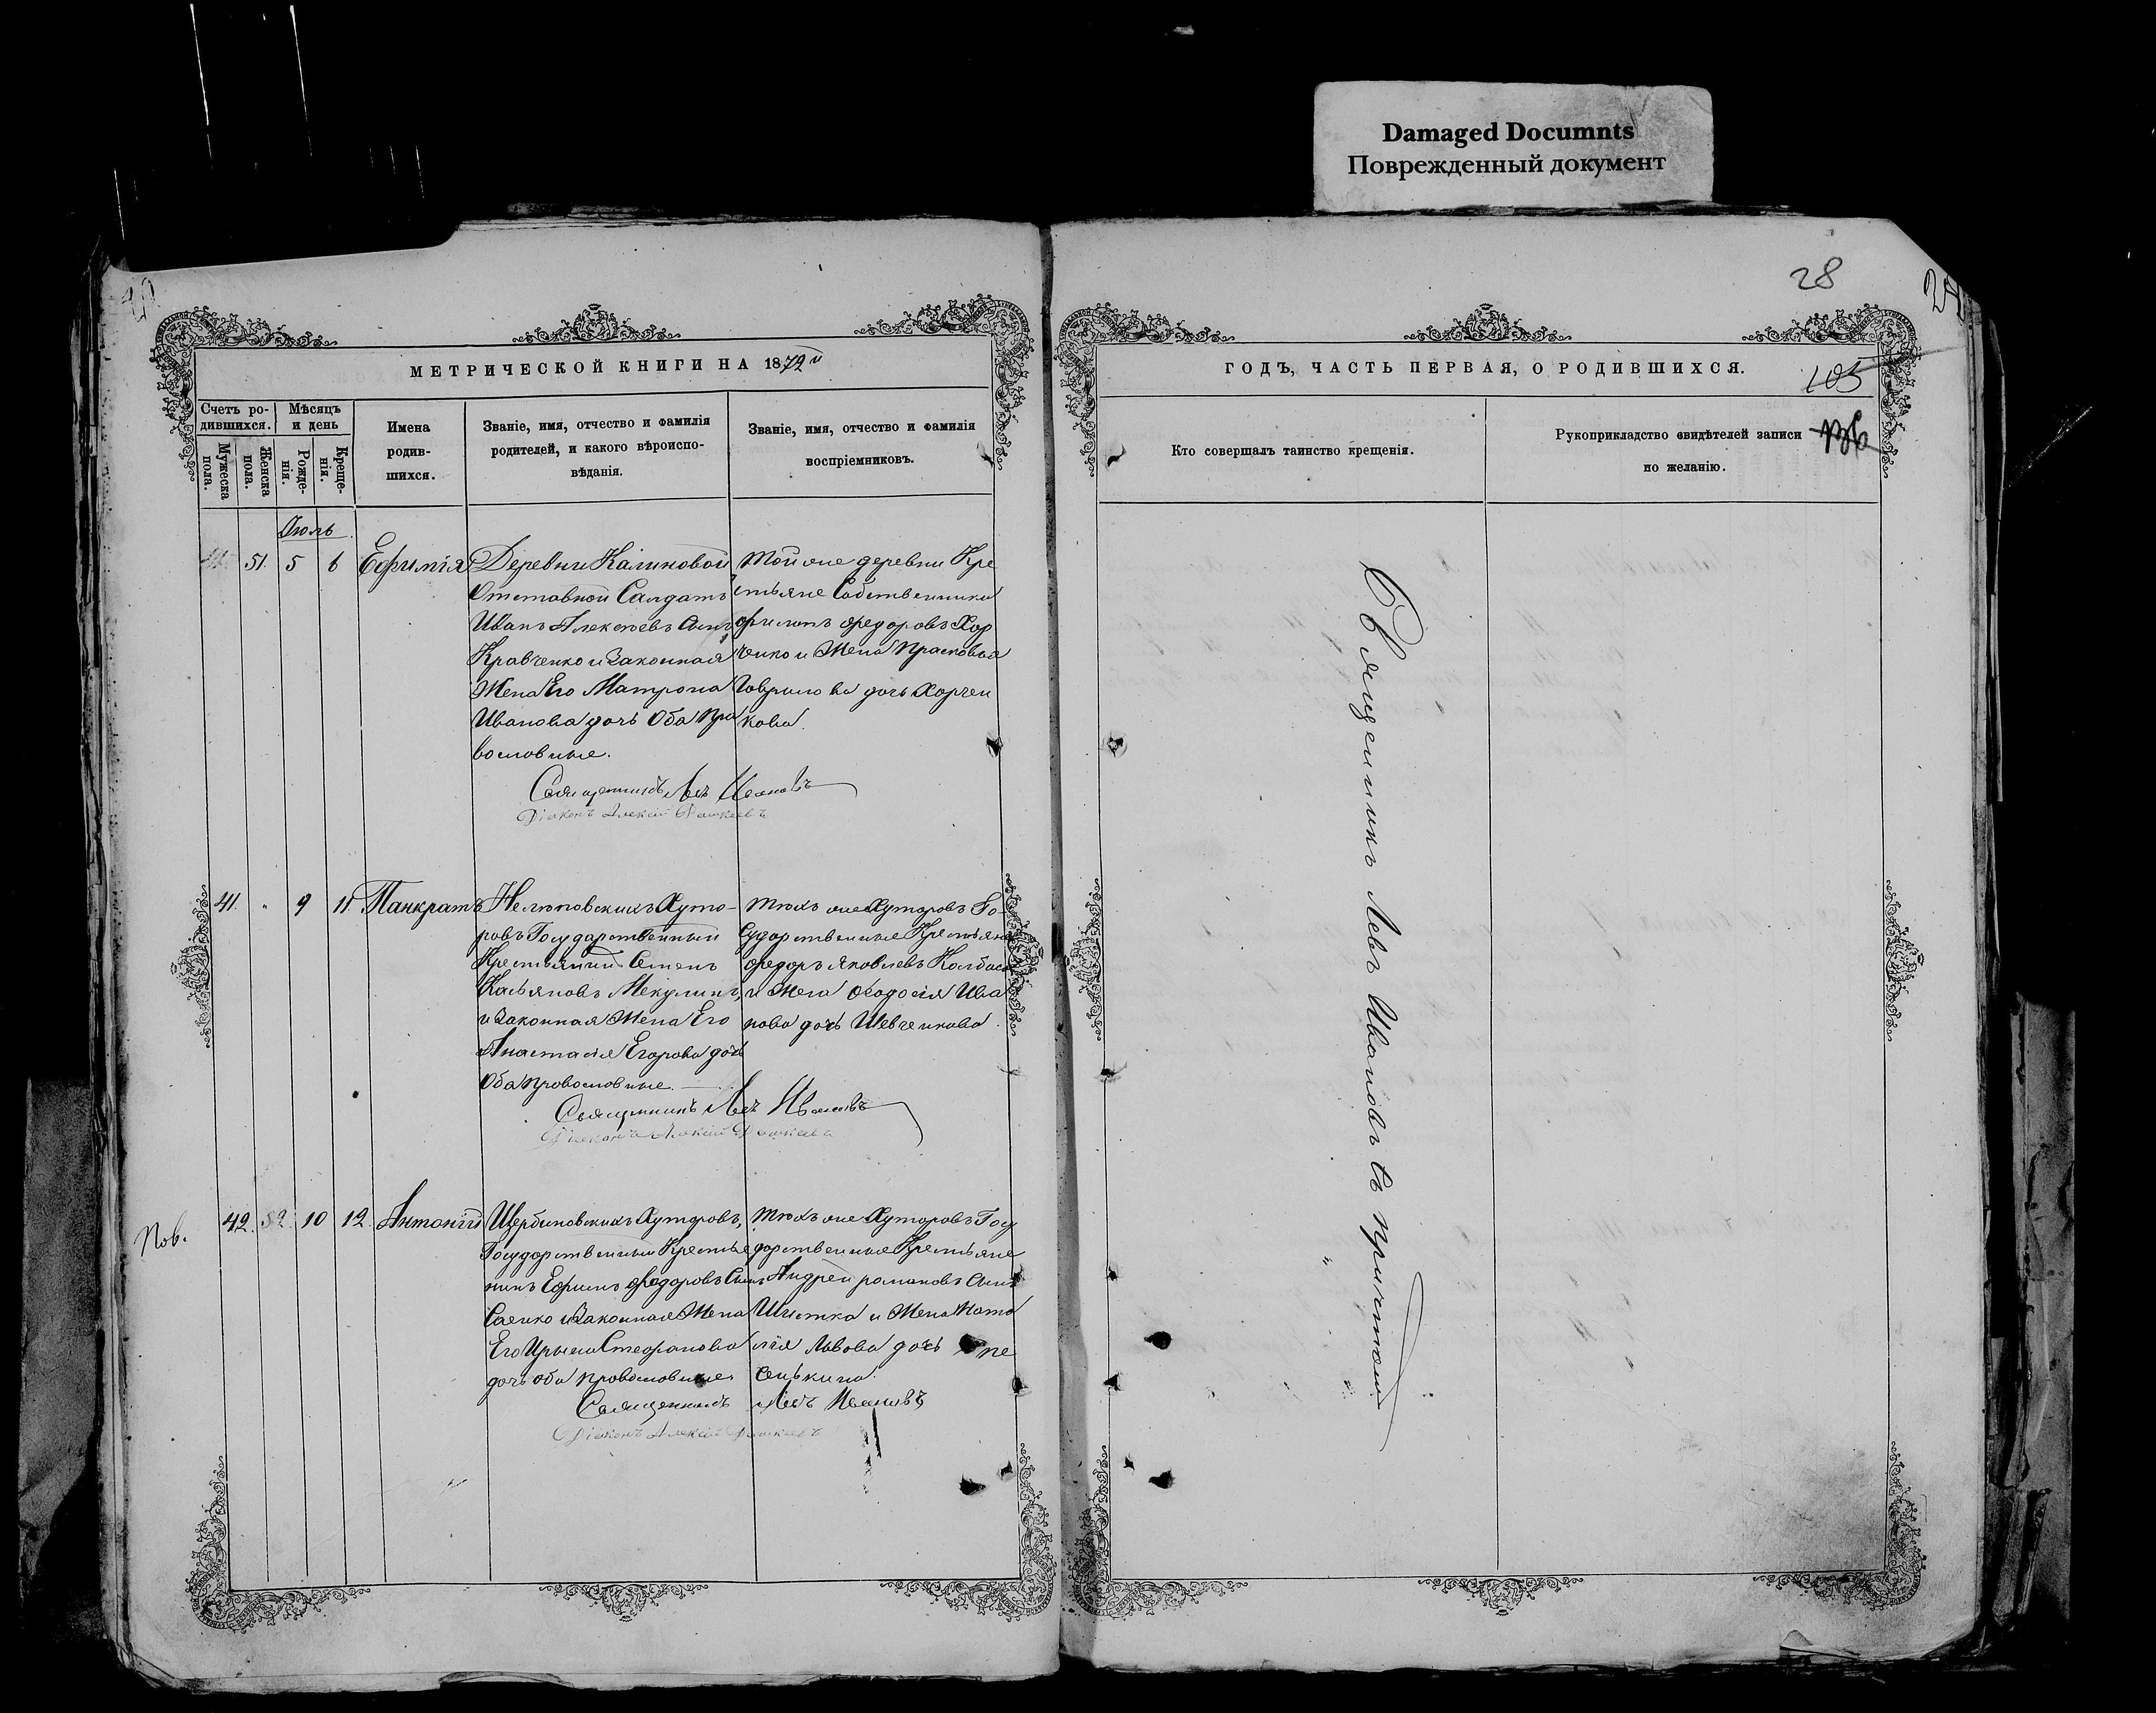 Damaged Documnts
Поврежденный документ
28
МЕТРИЧЕСКОЙ КНИГИ НА 1872й
Счетъ родившихся.
Мѣсяцъ и день
Мужеска пола.
Женска пола.
Рожденія.
Крещенія.
Имена
родив-
шихся.
Званіе, имя, отчество и фамилія
родителей, и какого вѣроиспо-
вѣданія.
Званіе, имя, отчество и фамилія
воспріемниковъ.
Июль
51. 5 6 Ефимія
Деревни Калиновой
Отставной Салдатъ
Иванъ Алексѣевъ Сынъ
Кравченко и Законная
Жена Его Матрона
Иванова дочь Оба Пра
вославные.
Той же деревни Кре
стьяне Собственники
Филипъ Федоровъ Хор
ченко и Жена Прасковья
Гаврилова дочь Харчен
кова.
Священникъ Левъ Ивановъ
Діаконъ Алексій
41. " 9 11 Панкратъ
Нелюповскихъ Хуто-
ровъ Государственный
Крестьянинъ Семенъ
Касьяновъ
и Законная Жена Его
Анастасія Егорова дочь
Оба Православные.
Тѣхъ же Хуторовъ Го-
сударственные Крестьяне
Федоръ Яковлевъ Колбаса
и Жена Феодосія Ива
нова дочь Шевченкова.
Священникъ Левъ Ивановъ
Діаконъ Алексій
42. 10 12 Антоній
Щербиновскихъ Хуторовъ,
Государственный Крестья
нинъ Ефимъ Федоровъ Сынъ
Саенко и Законная Жена
Его Ирина Стефанова
дочь оба православные
Тѣхъ же Хуторовъ Госу
дарственные Крестьяне
Андрей Романовъ Сынъ
и Жена Ната
лія Львова дочь
Священникъ Левъ Ивановъ
Діаконъ Алексій
ГОДЪ, ЧАСТЬ ПЕРВАЯ, О РОДИВШИХСЯ.
105
Кто совершалъ таинство крещенія.
Рукоприкладство свидѣтелей записи
по желанію.
Священникъ Левъ Ивановъ съ причтомъ